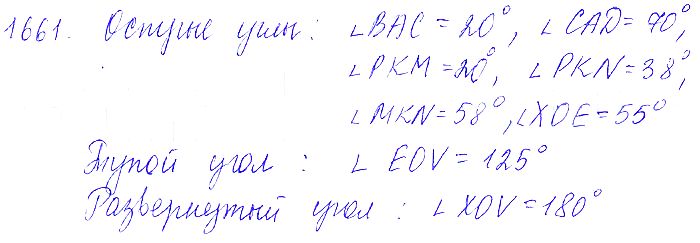 1661. Острые углы: ∠BAC = 20°, ∠CAD = 70°,
∠PKM = 20°, ∠PKN = 38°,
∠MKN = 58°, ∠XOE = 55°
Тупой угол: ∠ EOV = 125°
Развернутый угол: ∠ XOV = 180°